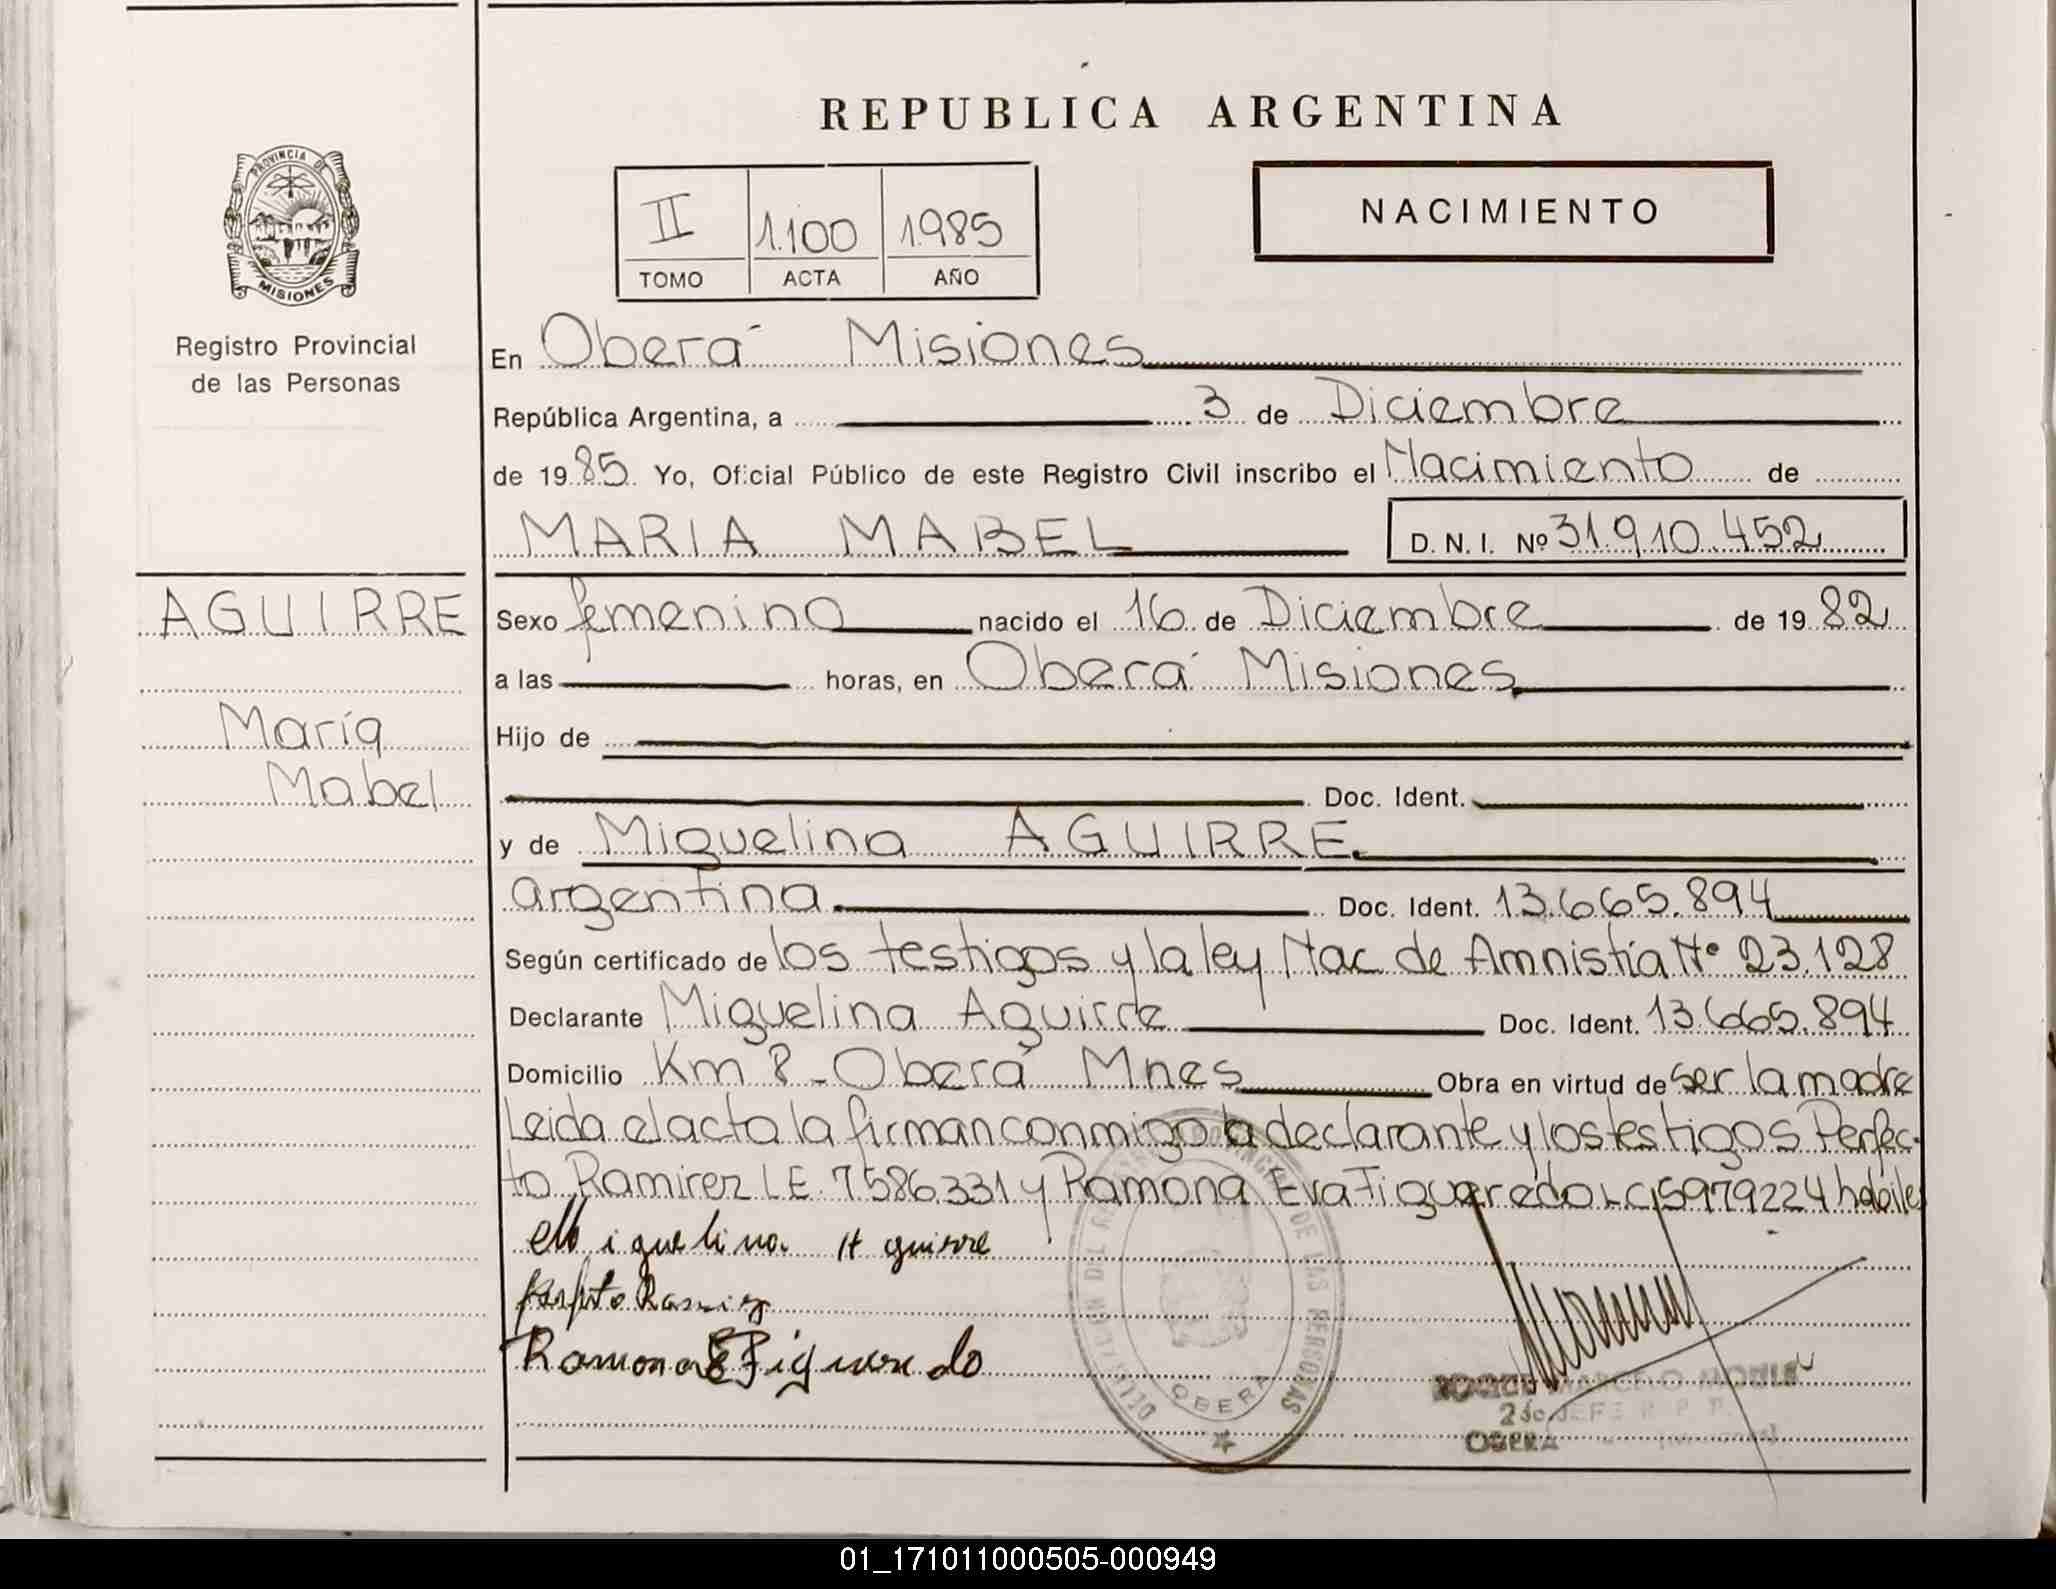 REPUBLICA ARGENTINA
PROVINCIA DE
MISIONES
Registro Provincial
de las Personas
II 1.100 1985
TOMO ACTA AÑO
NACIMIENTO
En Oberá Misiones
República Argentina, a 3 de Diciembre
de 1985 Yo, Oficial Público de este Registro Civil inscribo el Nacimiento de
MARIA MABEL D. N. I. Nº 31.910.452
AGUIRRE
María
Mabel
Sexo femenino nacido el 16 de Diciembre de 1982
a las horas, en Oberá Misiones
Hijo de
Doc. Ident.
y de Miguelina AGUIRRE.
argentina. Doc. Ident. 13.665.894
Según certificado de los testigos y la ley Nac de Amnistía Nº 23.128
Declarante Miguelina Aguirre Doc. Ident. 13.665.894
Domicilio Km 8 - Oberá Mnes Obra en virtud de ser la madre
Leida el acta la firman conmigo la declarante y los testigos Perfec-
to Ramirez L E. 7586331 y Ramona Eva Figueredo L C 5979224 habiles
Miguelina Aguirre
Perfecto Ramirez
Ramona E Figueredo
DE LAS PERSONAS
OBERA
MARCELO
2do JEFE R. P. P.
OBERA
01_171011000505-000949